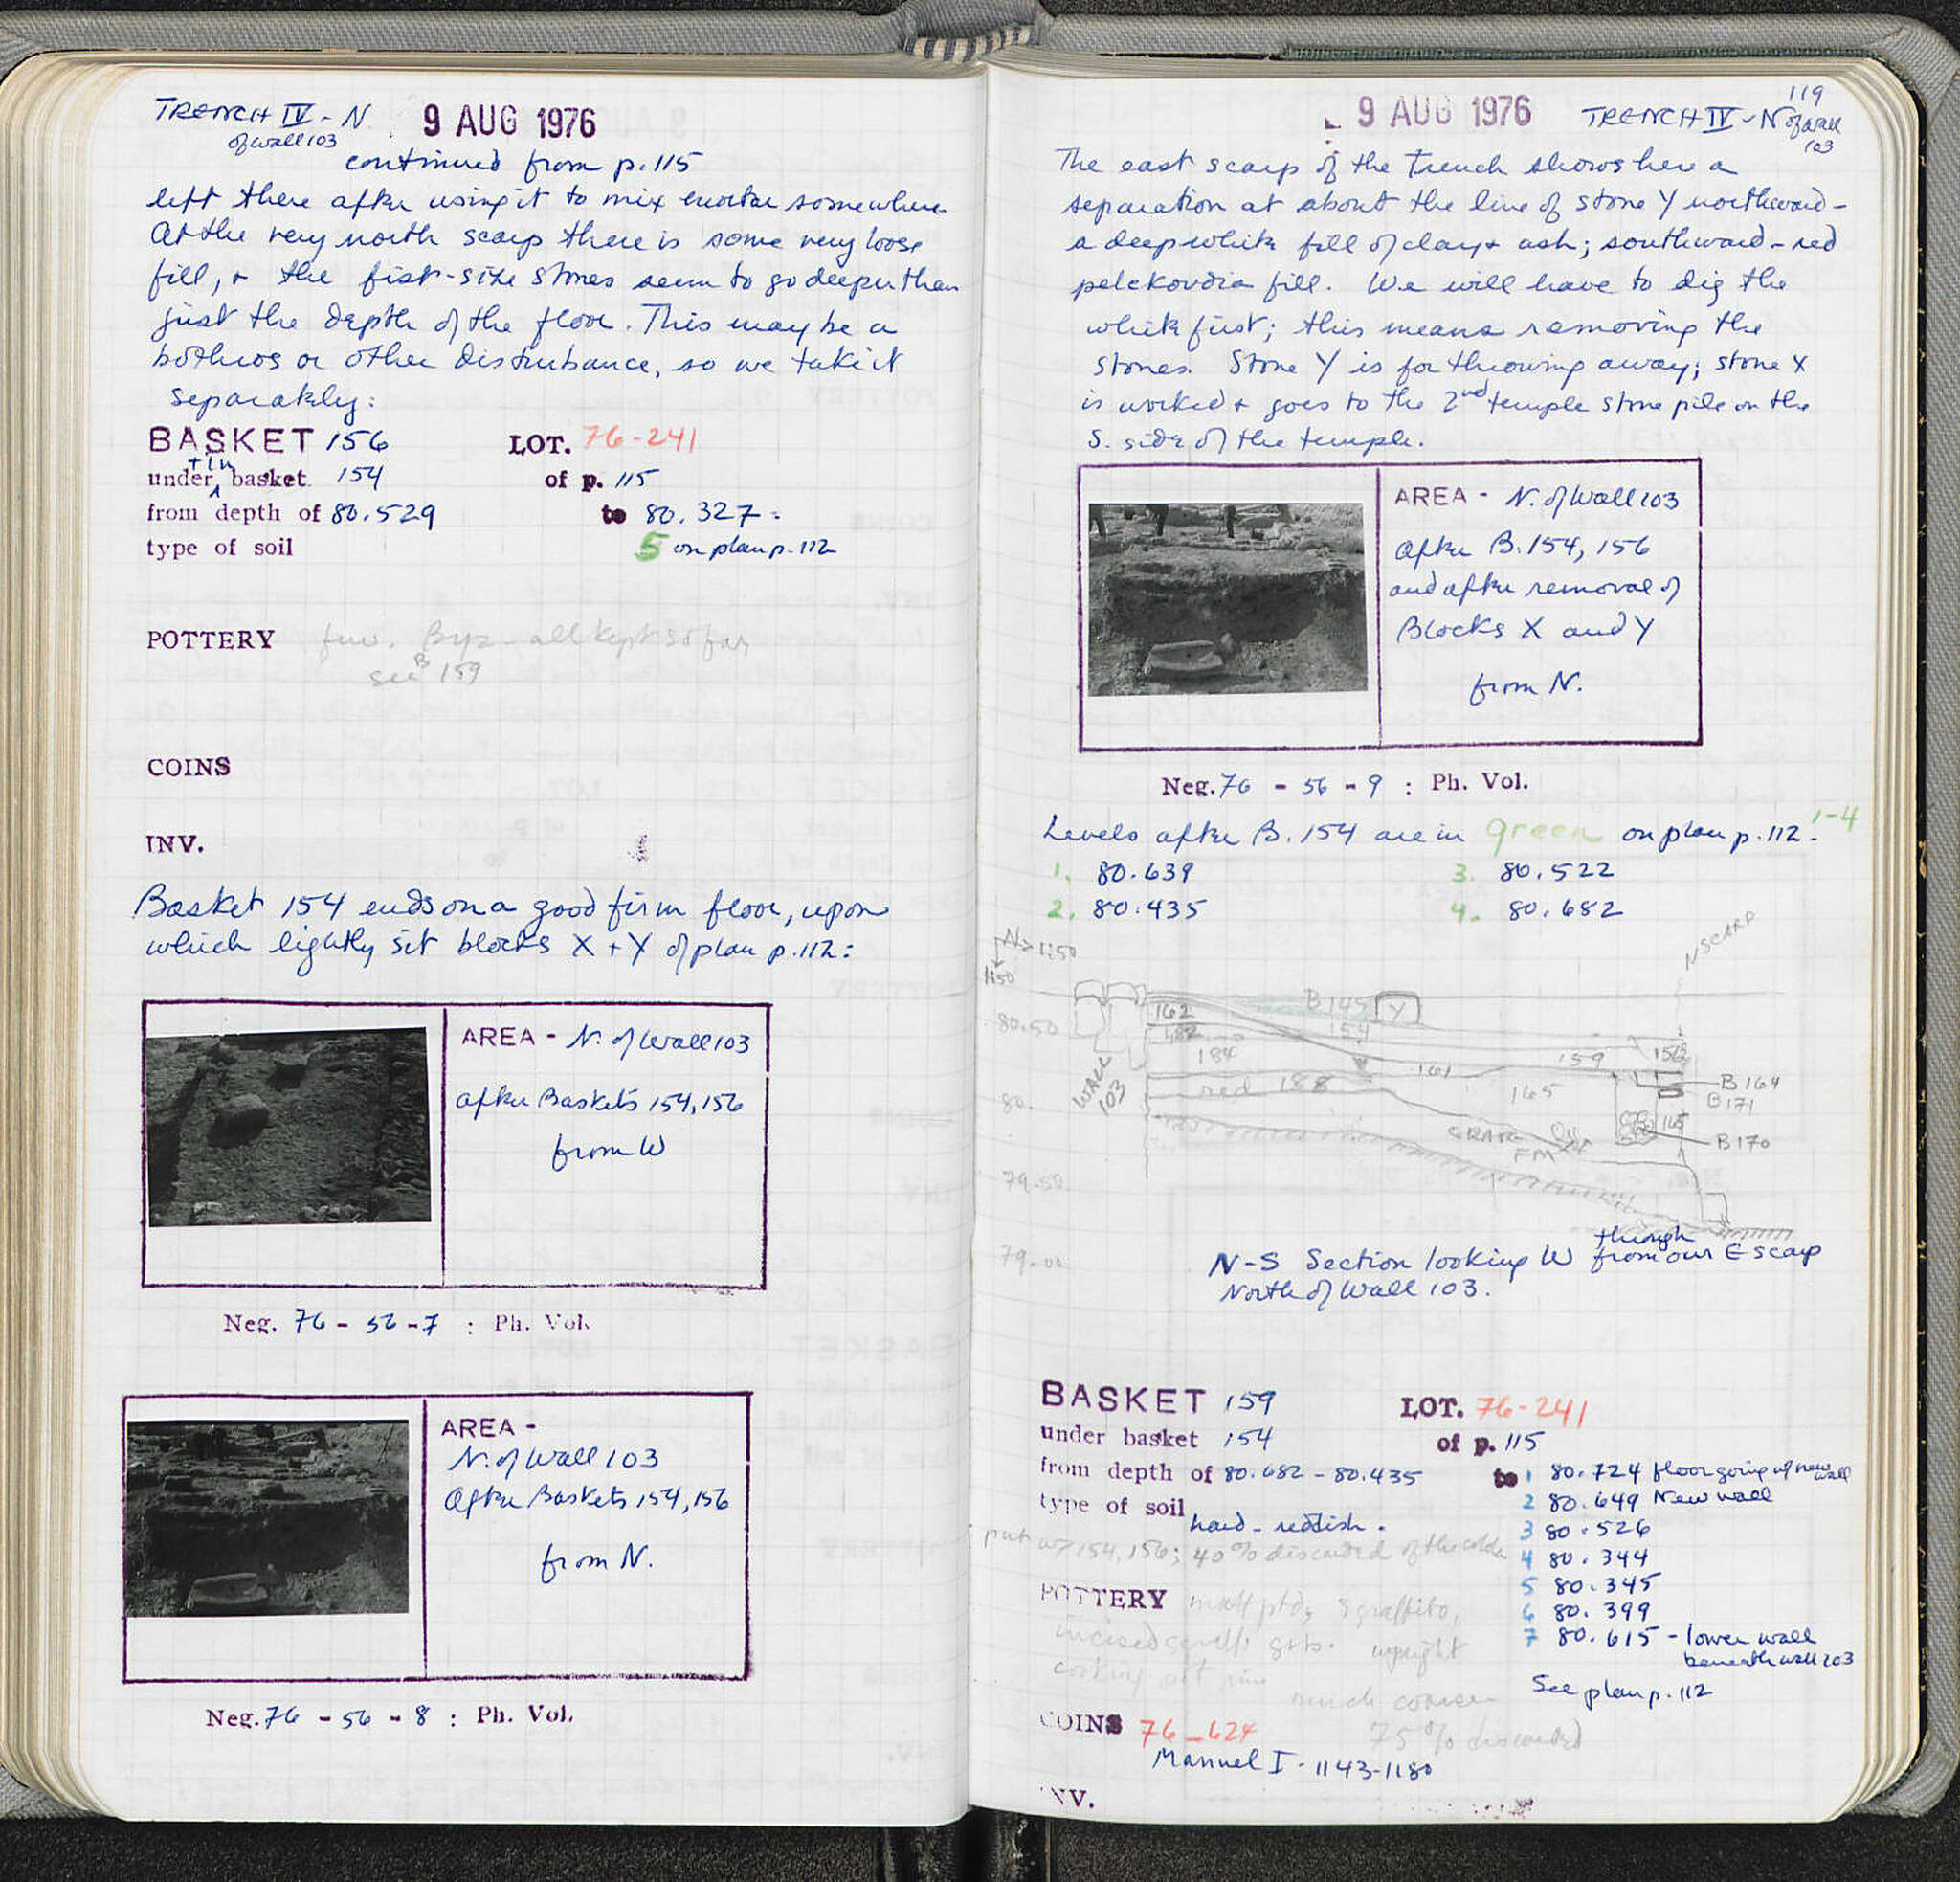 TRENCH IV - N
of wall 103
9 AUG 1976
continued from p. 115
left there after using it to mix mortar somewhere.
At the very north scarp there is some very loose
fill, + the fist-size stones seem to go deeper than
just the depth of the floor. This may be a
bothros or other disturbance, so we take it
separately:
BASKET 156 LOT. 76-241
+ in
under basket 154 of p. 115
from depth of 80.529 to 80.327 =
type of soil 5 on plan p. 112
POTTERY few. Byz - all kept so far
see B 159
COINS
INV.
Basket 154 ends on a good firm floor, upon
which lightly sit blocks X + Y of plan p. 112:
AREA - N. of Wall 103
after Baskets 154, 156
from W
Neg. 76 - 56 - 7 : Ph. Vol.
AREA -
N. of Wall 103
After Baskets 154, 156
from N.
Neg. 76 - 56 - 8 : Ph. Vol.
119
9 AUG 1976 TRENCH IV - N of wall
103
The east scarp of the trench shows here a
separation at about the line of stone Y northward -
a deep white fill of clay + ash; southward - red
pelekoudia fill. We will have to dig the
white first; this means removing the
stones. Stone Y is for throwing away; stone X
is worked + goes to the 2nd temple stone pile on the
S. side of the temple.
AREA - N. of Wall 103
After B. 154, 156
and after removal of
Blocks X and Y
from N.
Neg. 76 - 56 - 9 : Ph. Vol.
Levels after B. 154 are in green on plan p. 112. 1-4
1. 80.639 3. 80.522
2. 80.435 4. 80.682
N SCARP
N> 1:50
1:50
B 145 Y
162
80.50 182 154
184 159 156
161
WALL 103 red 188 165 B 164
80. B 171
165
B 170
79.50
79.00
N-S Section looking W from our E scarp
through
North of Wall 103.
BASKET 159 LOT. 76-241
under basket 154 of p. 115
from depth of 80.682 - 80.435 to 1 80.724 floor going w/ new wall
type of soil 2 80.649 New wall
hard - reddish. 3 80.526
put w/ 154, 156; 40% discarded of the 4 80.344
5 80.345
POTTERY matt ptd, sgraffito, 6 80.399
incised upright 7 80.615 - lower wall
beneath wall 103
cooking pot rim
much coarse See plan p. 112
75% discarded
COINS 76-624
Manuel I - 1143-1180
INV.